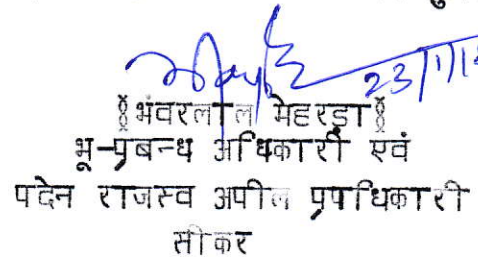 23/1/1
§भंवरलाल मेहरड़ा§
भू-प्रबन्ध अधिकारी एवं
पदेन राजस्व अपील प्राधिकारी
सीकर